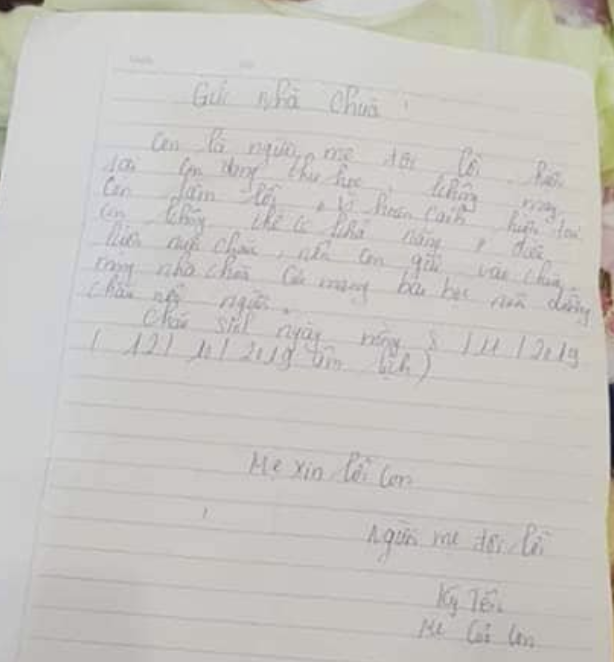 Gửi nhà chùa!
Con là người mẹ tội lỗi. Hiện
tại con đang theo học, không may
con lầm lỡ, vì hoàn cảnh hiện tại
con không thể có khả năng, được
nuôi cháu, nên con gửi vào chùa
mong nhà chùa cưu mang nuôi dưỡng
cháu nên người.
Cháu sinh ngày mồng 8/11/2019
(12/10/2019 âm lịch)
Mẹ xin lỗi con
Người mẹ tội lỗi
Ký Tên
Mẹ Của Con